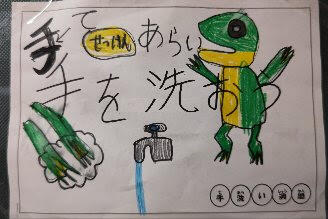 手て せっけん あらい
手を洗おう
手洗い